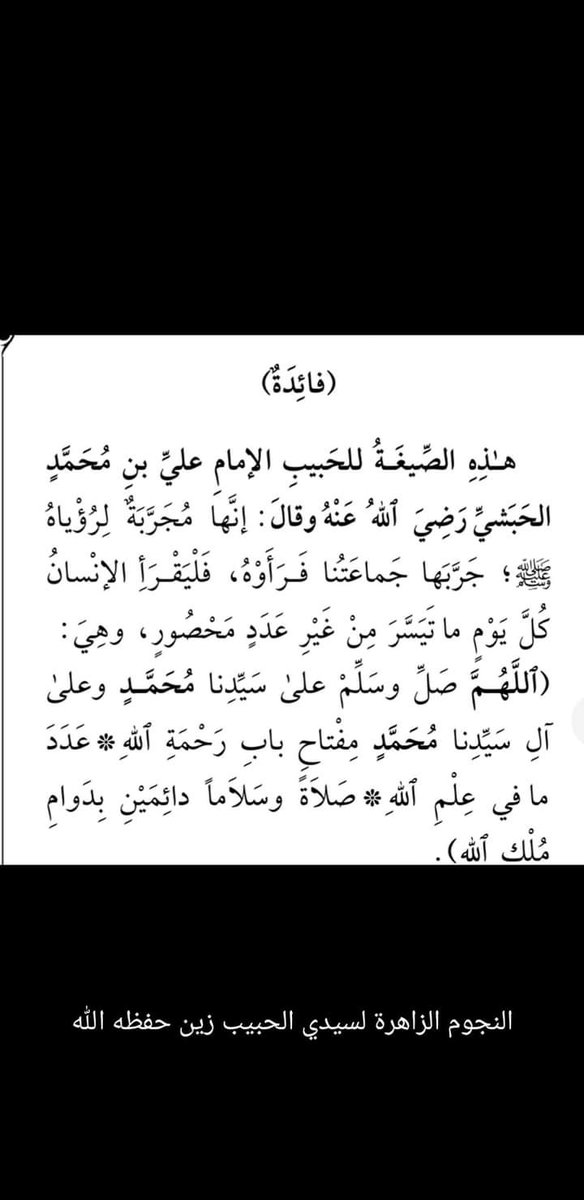 (فائِدَةٌ)
هـٰذِهِ الصِّيغَـةُ للحَبيبِ الإمامِ عليِّ بنِ مُحَمَّدٍ
الحَبَشيِّ رَضِيَ ٱللهُ عَنْهُ وقالَ: إنَّها مُجَرَّبَةٌ لِرُؤْياهُ
ﷺ؛ جَرَّبَها جَماعَتُنا فَـرَأَوْهُ، فَلْيَقْـرَأِ الإنْسانُ
كُلَّ يَوْمٍ ما تَيَسَّرَ مِنْ غَيْرِ عَدَدٍ مَحْصُورٍ، وهِيَ:
(ٱللَّهُـمَّ صَلِّ وسَلِّمْ علىٰ سَيِّدِنا مُحَمَّـدٍ وعلىٰ
آلِ سَيِّدِنا مُحَمَّدٍ مِفْتاحِ بابِ رَحْمَةِ ٱللهِ * عَدَدَ
ما في عِلْمِ ٱللهِ * صَلاَةً وسَلاَماً دائِمَيْنِ بِدَوامِ
مُلْكِ ٱللهِ).
النجوم الزاهرة لسيدي الحبيب زين حفظه الله